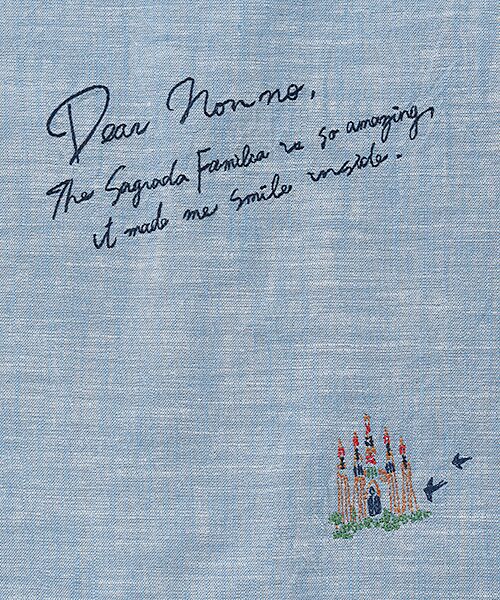 Dear Nonno,
The Sagrada Familia is so amazing,
it made me smile inside.